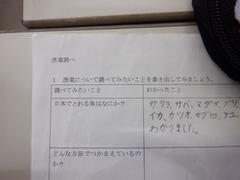 漁業調べ
1 漁業について調べてみたいことを書き出してみましょう。
調べてみたいこと
わかったこと
日本でとれる魚はなにか?
サワラ、サバ、マダイ、ブリ
イカ、カツオ、マグロ、アユ
わかりました。
どんな方法でつかまえているの
か?